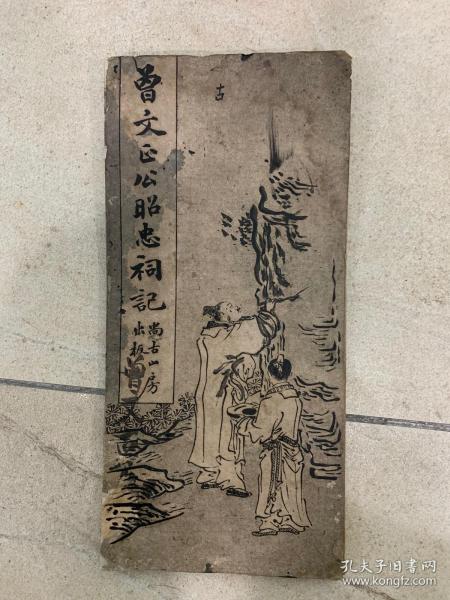 曾文正公昭忠祠記
尚古山房
出板
古
孔夫子旧书网
www.kongfz.com